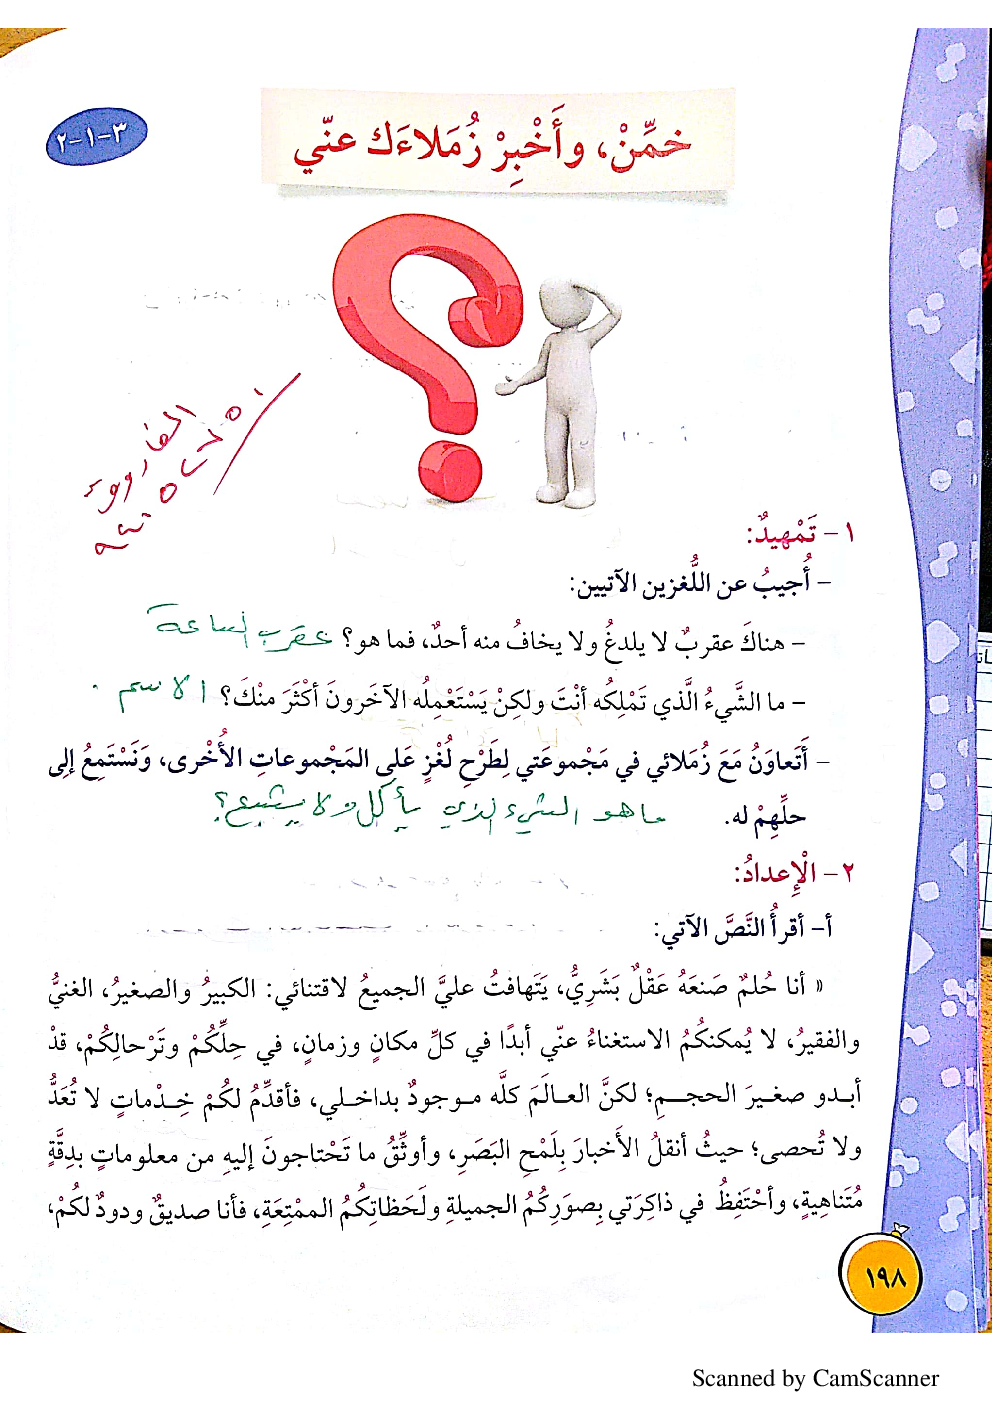 ٣-١-٢
خمِّنْ، وأَخْبِرْ زُمَلاءَك عنّي
١- تَمْهيدٌ:
- أُجيبُ عن اللُّغزين الآتيين:
- هناكَ عقربٌ لا يلدغُ ولا يخافُ منه أحدٌ، فما هو؟ عقرب الساعة
- ما الشَّيءُ الَّذي تَمْلِكُه أنْتَ ولكِنْ يَسْتَعْمِلُه الآخَرونَ أكْثَرَ منْكَ؟ الاسم .
- أَتَعاوَنُ مَعَ زُمَلائي في مَجْموعَتي لِطَرْحِ لُغْزٍ عَلى المَجْموعاتِ الأُخْرى، وَنَسْتَمِعُ إلى
حلِّهِمْ له. ما هو الشيء الذي يأكل ولا يشبع؟
٢- الْإِعدادُ:
أ- أقرأُ النَّصَّ الآتي:
« أنا حُلمٌ صَنعَهُ عَقْلٌ بَشَرِيٌّ، يَتَهافتُ عليَّ الجميعُ لاقتنائي: الكبيرُ والصغيرُ، الغنيُّ
والفقيرُ، لا يُمكنكُمُ الاستغناءُ عنّي أبدًا في كلِّ مكانٍ وزمانٍ، في حِلِّكُمْ وتَرْحالِكُمْ، قدْ
أبدو صغيرَ الحجمِ؛ لكنَّ العالَمَ كلَّه موجودٌ بداخلي، فأقدِّمُ لكُمْ خِدْماتٍ لا تُعَدُّ
ولا تُحصى؛ حيثُ أنقلُ الأَخبارَ بِلَمْحِ البَصَرِ، وأوثِّقُ ما تَحْتاجونَ إليهِ من معلوماتٍ بدِقَّةٍ
مُتَناهِيةٍ، وأحْتَفِظُ في ذاكِرَتي بِصوَرِكُمُ الجميلةِ ولَحَظاتِكُمُ الممْتِعَةِ، فأنا صديقٌ ودودٌ لكُمْ،
١٩٨
Scanned by CamScanner